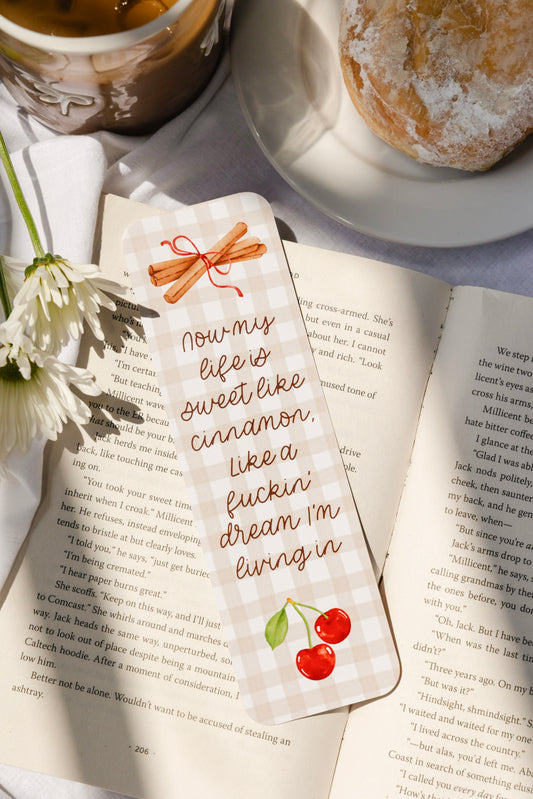 now my
life is
sweet like
cinnamon,
like a
fuckin'
dream I'm
living in
ing cross-armed. She's
but even in a casual
about her. I cannot
y and rich. "Look
used tone of
drive
"I'm certa
"But teaching
Millicent waves
to the ER becaus
that should be your b
Jack herds me inside
back, like touching me cas
ing on.
"You took your sweet time
inherit when I croak." Millicent
her. He refuses, instead enveloping
tends to bristle at but clearly loves.
"I told you," he says, "just get buried
"I'm being cremated."
"I hear paper burns great."
She scoffs. "Keep on this way, and I'll just
to Comcast." She whirls around and marches
way. Jack heads the same way, unperturbed, so
not to look out of place despite being a mountain
Caltech hoodie. After a moment of consideration, I
low him.
Better not be alone. Wouldn't want to be accused of stealing an
ashtray.
· 206 ·
We step
the wine two
licent's eyes as
cross his arms,
Millicent
hate bitter coffee
I glance at the
"Glad I was abl
Jack nods politely,
cheek, then saunter
my back, and he gen
to leave, when—
"But since you're a
Jack's arms drop to
"Millicent," he says, s
calling grandmas by the
the ones before, you don
with you."
"Oh, Jack. But I have be
"When was the last tim
didn't?"
"Three years ago. On my b
"But was it?"
"Hindsight, shmindsight." S
"I waited and waited for my one
"I lived across the country."
"—but alas, you'd left me. Aba
Coast in search of something elusi
"I called you every day fo
"How's tha